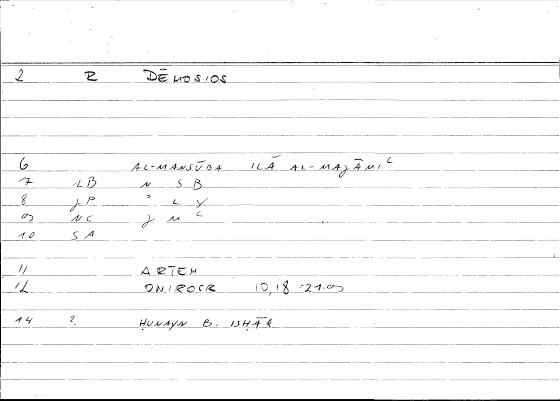 2 R DĒMOSIOS
6 AL-MANSŪBA ILĀ AL-MAJĀMIʿ
7 LB N S B
8 JP ʾ L Y
9 NC J M ʿ
10 SA
11 ARTEM
12 ONIROCR 10,18-21.9
14 2. ḤUNAYN B. ISḤĀQ